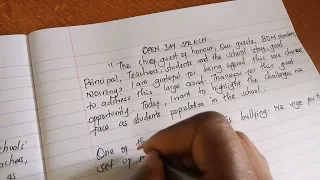 OPEN DAY SPEECH.
"The chief guest of honour, Our guests, BOM members,
Principal, Teachers, students and the school staff, good
morning? I am grateful for being offered this rare chance
to address this large crowd. Thankyou for this good
opportunity. Today, I want to highlight the challenges we
face as students population in the school.
One of is bullying. We urge you to
set up
schools'
teachers,
as